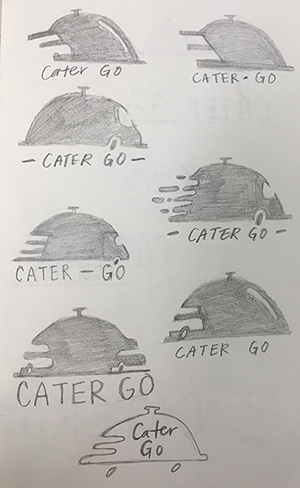 Cater GO
CATER - GO
- CATER GO -
- CATER GO -
CATER - GO
CATER GO
CATER GO
Cater
Go